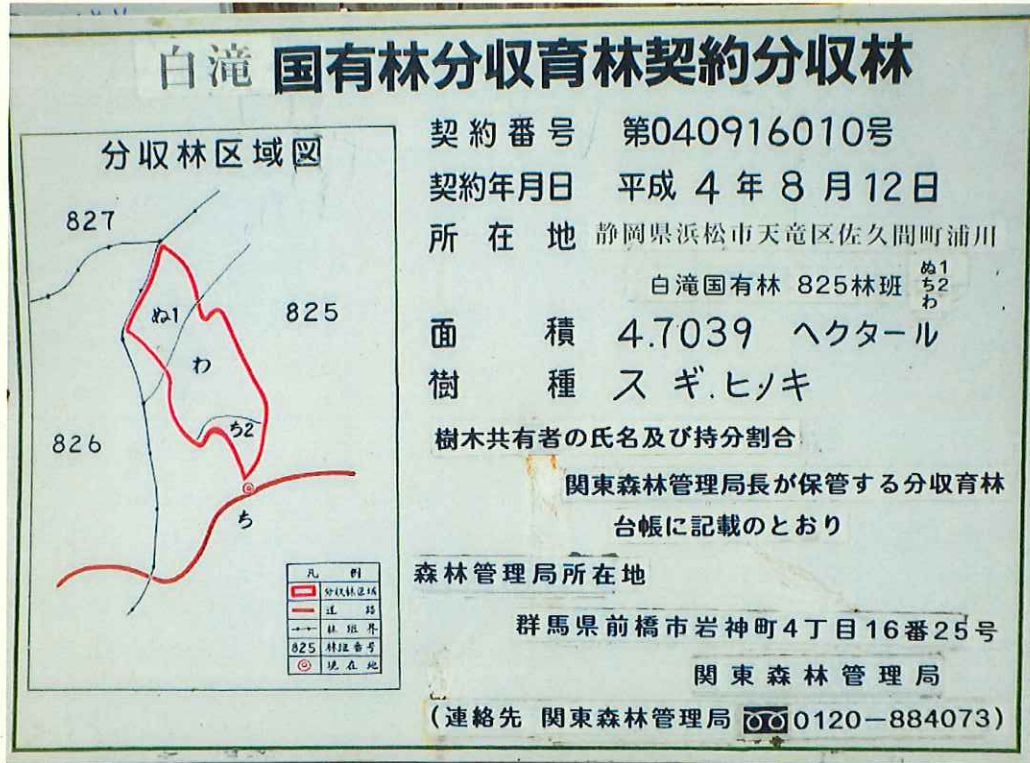 白滝 国有林分収育林契約分収林
分収林区域図
827
825
826
ぬ1
わ
ち2
ち
凡 例
分収林区域
道 路
林班界
825 林班番号
現在地
契約番号 第040916010号
契約年月日 平成 4 年 8 月 12 日
所在地 静岡県浜松市天竜区佐久間町浦川
白滝国有林 825林班 ぬ1
ち2
わ
面積 4.7039 ヘクタール
樹種 スギ.ヒノキ
樹木共有者の氏名及び持分割合
関東森林管理局長が保管する分収育林
台帳に記載のとおり
森林管理局所在地
群馬県前橋市岩神町4丁目16番25号
関東森林管理局
(連絡先 関東森林管理局 0120-884073)